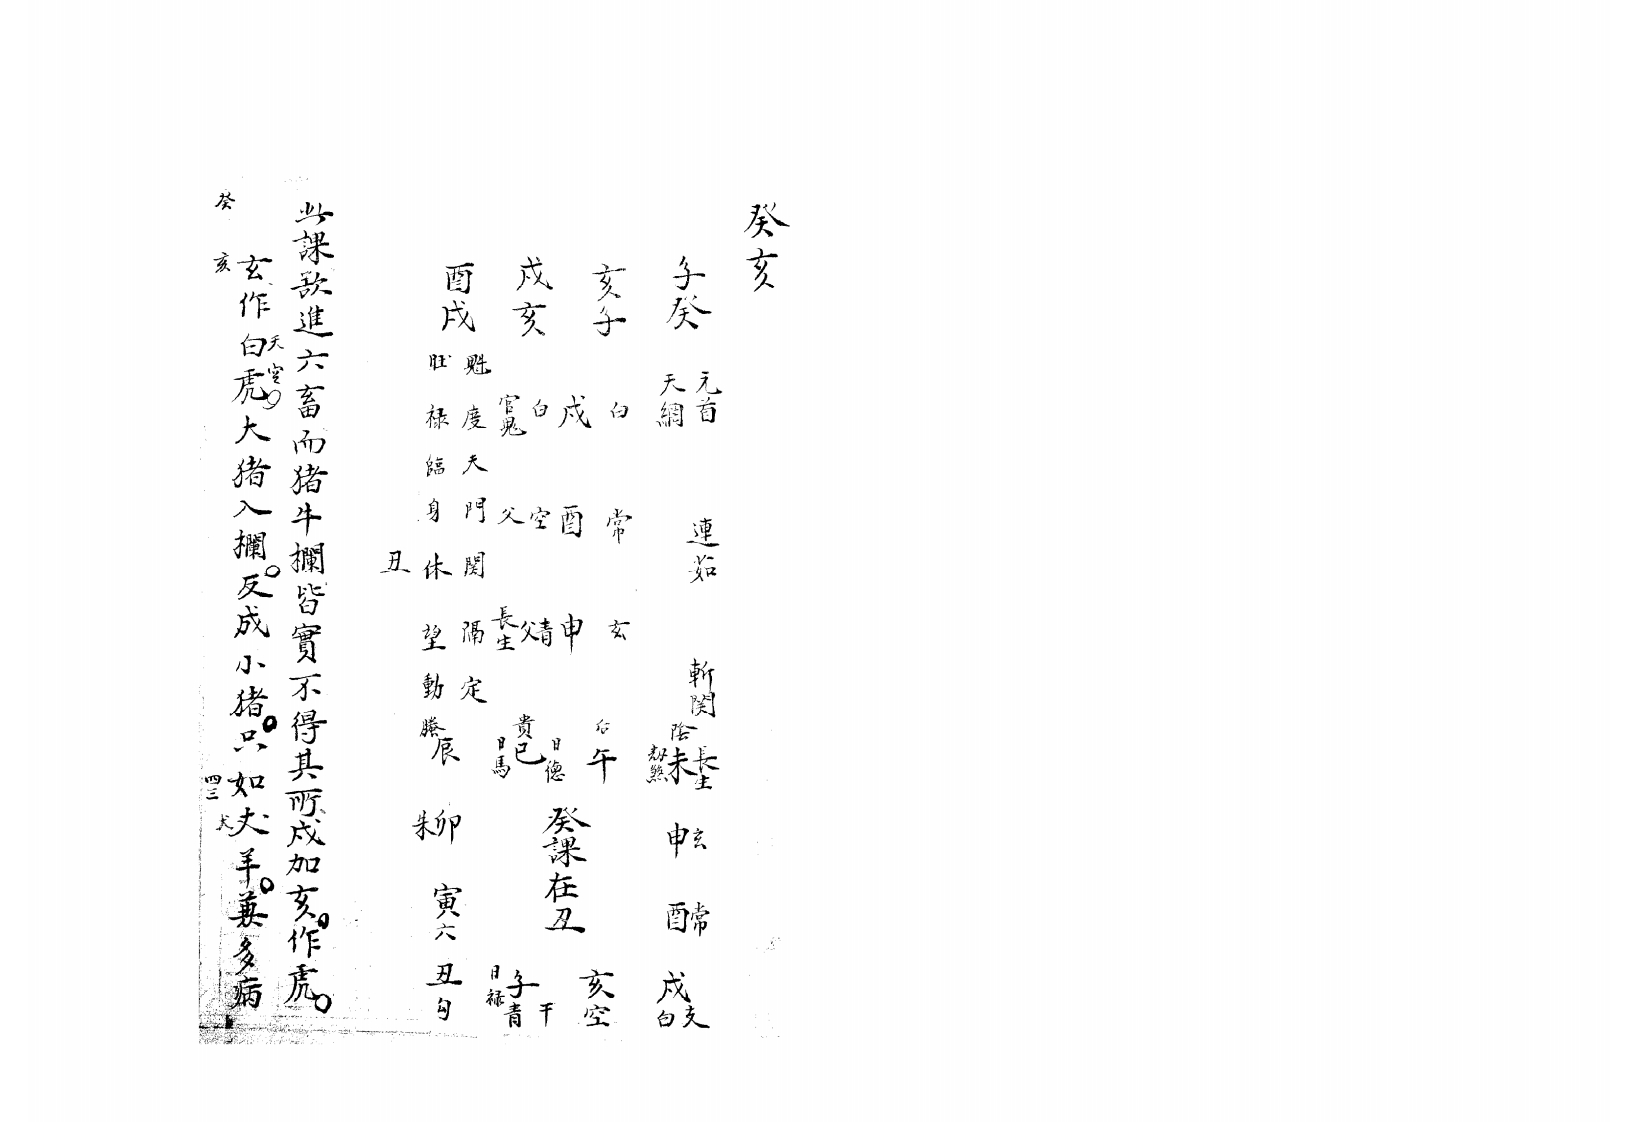 癸亥
子癸 元首 連茹 斬関
天網
亥子
戌亥
酉戌
白 戌 白 官鬼
常 酉 空 父
玄 申 青 父 長生
魁度天門関隔定
旺禄臨身休望動
丑
陰 未 長生
后 午
貴 巳 日德 日馬
螣 辰
申 玄
朱 卯
癸課在丑
酉 常
寅 六
戌 白 支
亥 空
子 青 日禄 干
丑 勾
此課欲進六畜而猪牛欄皆實不得其所戌加亥作虎
玄作白虎大猪入欄反成小猪只如犬羊兼多病
天空
癸亥
四三
犬